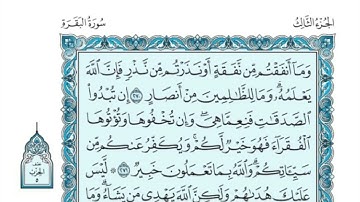 الجزء الثالث
سورة البقرة
وَمَآ أَنفَقْتُم مِّن نَّفَقَةٍ أَوْ نَذَرْتُم مِّن نَّذْرٍ فَإِنَّ ٱللَّهَ
يَعْلَمُهُۥ ۗ وَمَا لِلظَّـٰلِمِينَ مِنْ أَنصَارٍ ٢٧٠ إِن تُبْدُوا۟
ٱلصَّدَقَـٰتِ فَنِعِمَّا هِىَ ۖ وَإِن تُخْفُوهَا وَتُؤْتُوهَا
ٱلْفُقَرَآءَ فَهُوَ خَيْرٌ لَّكُمْ ۚ وَيُكَفِّرُ عَنكُم مِّن
سَيِّـَٔاتِكُمْ ۗ وَٱللَّهُ بِمَا تَعْمَلُونَ خَبِيرٌ ٢٧١ لَّيْسَ
عَلَيْكَ هُدَىٰهُمْ وَلَـٰكِنَّ ٱللَّهَ يَهْدِى مَن يَشَآءُ ۗ وَمَا
الحزب
٥